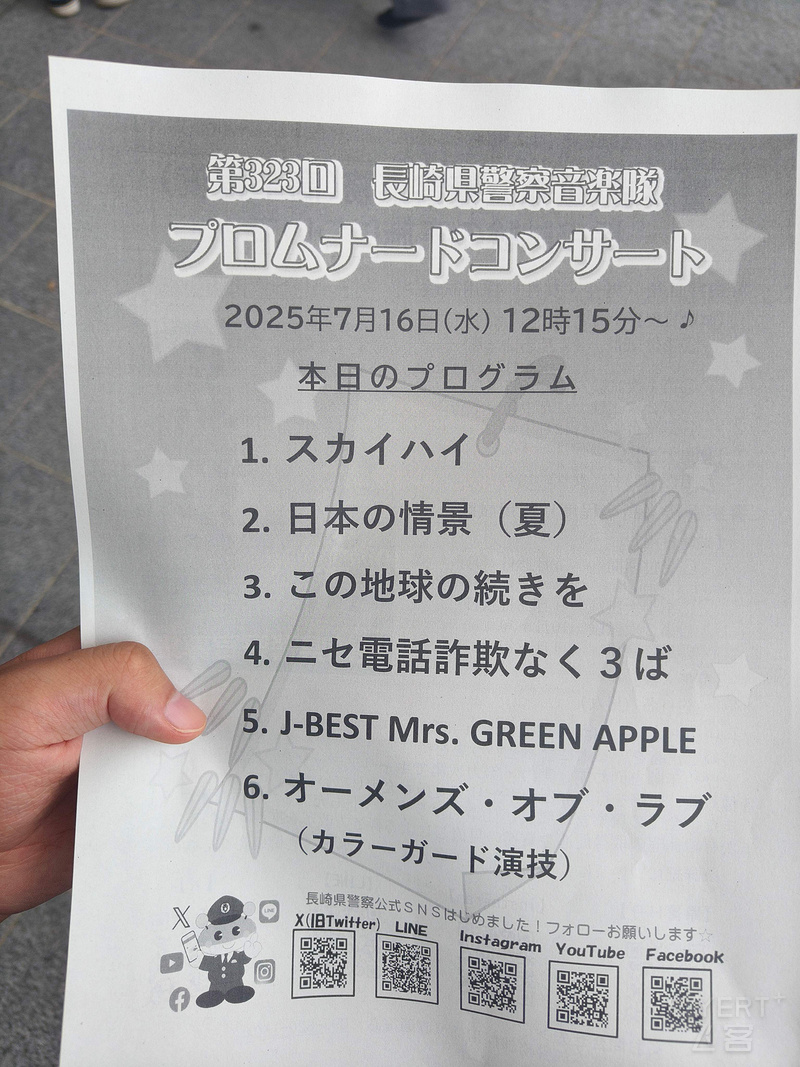 第323回 長崎県警察音楽隊
プロムナードコンサート
2025年7月16日(水) 12時15分～♪
本日のプログラム
1. スカイハイ
2. 日本の情景（夏）
3. この地球の続きを
4. ニセ電話詐欺なく３ば
5. J-BEST Mrs. GREEN APPLE
6. オーメンズ・オブ・ラブ
（カラーガード演技）
長崎県警察公式ＳＮＳはじめました！フォローお願いします☆
X(旧Twitter) LINE Instagram YouTube Facebook
LINE